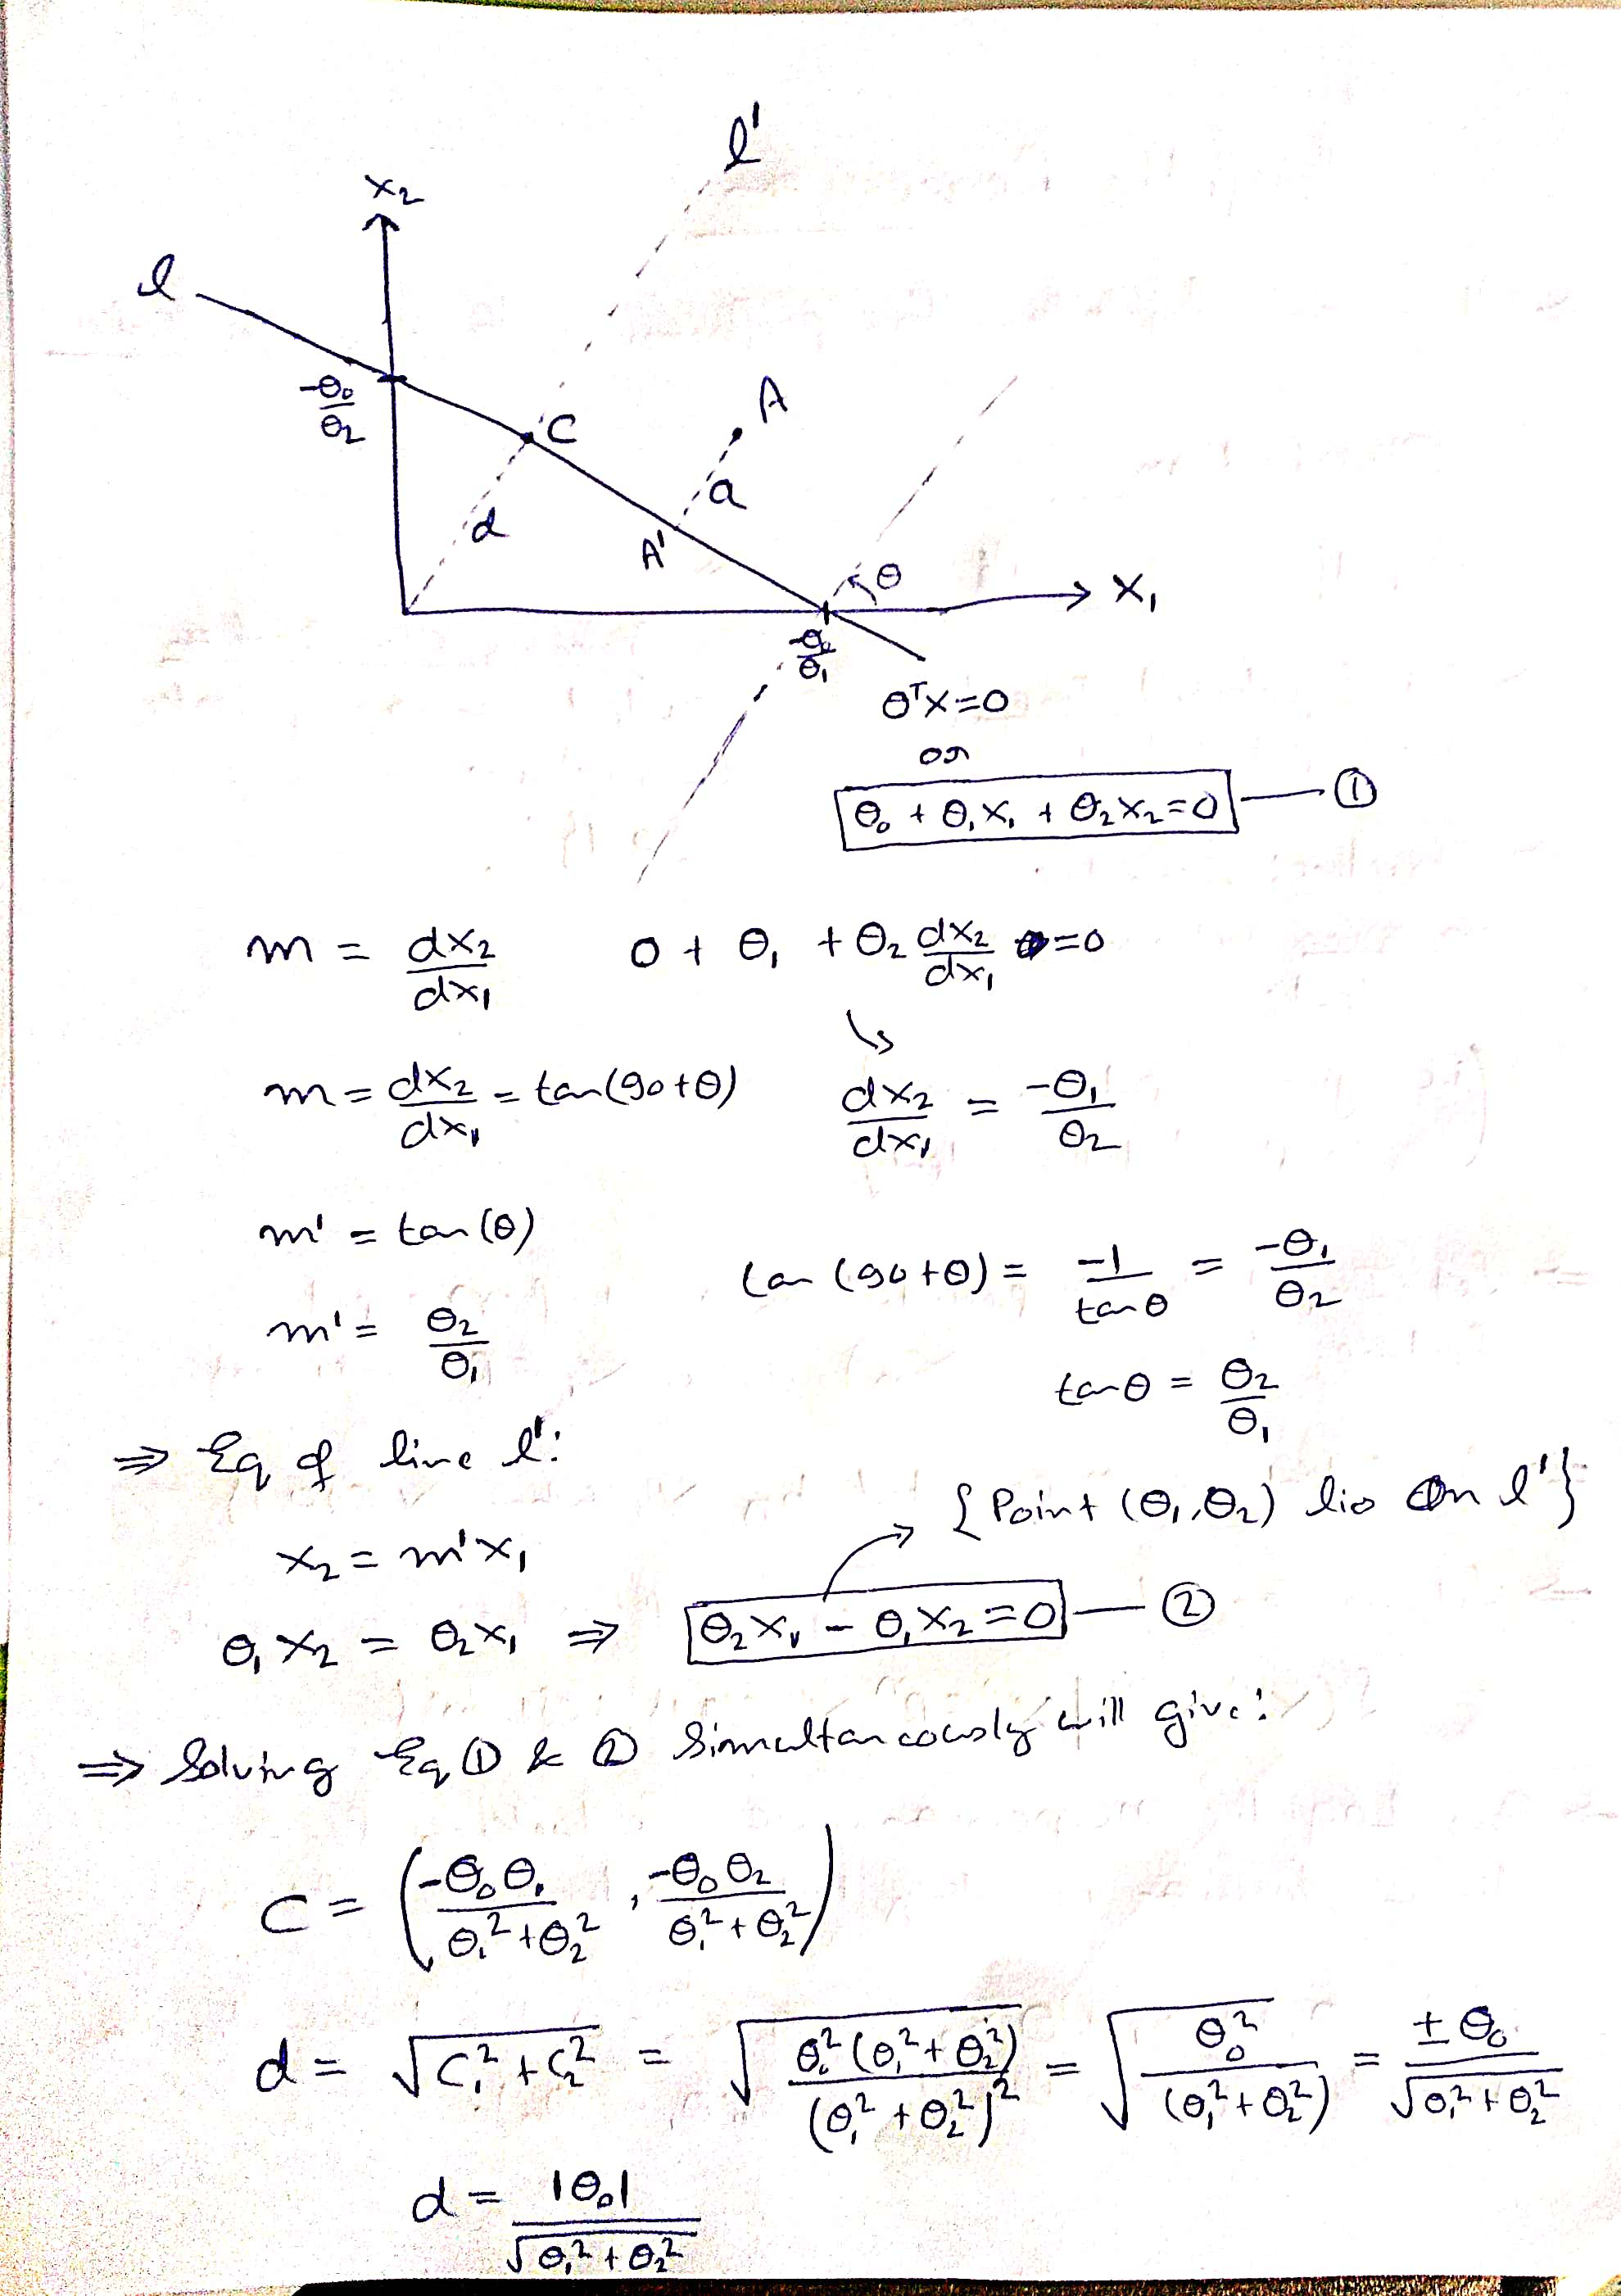 l'
x₂
l
-θ₀/θ₂
C
A
a
d
A'
θ
x₁
-θ₀/θ₁
θᵀx=0
or
θ₀ + θ₁x₁ + θ₂x₂=0 — ①
m = dx₂/dx₁ 0 + θ₁ + θ₂ dx₂/dx₁ =0
m = dx₂/dx₁ = tan(90+θ) dx₂/dx₁ = -θ₁/θ₂
m' = tan(θ)
tan(90+θ) = -1/tanθ = -θ₁/θ₂
m' = θ₂/θ₁
tanθ = θ₂/θ₁
⇒ Eq of line l':
{Point (θ₁,θ₂) lis on l'}
x₂ = m'x₁
θ₁x₂ = θ₂x₁ ⇒ θ₂x₁ - θ₁x₂=0 — ②
⇒ Solving Eq ① & ② Simultaneously will give:
C = (-θ₀θ₁/θ₁²+θ₂², -θ₀θ₂/θ₁²+θ₂²)
d = √C₁²+C₂² = √θ₀²(θ₁²+θ₂²)/(θ₁²+θ₂²)² = √θ₀²/(θ₁²+θ₂²) = ±θ₀/√θ₁²+θ₂²
d = |θ₀|/√θ₁²+θ₂²